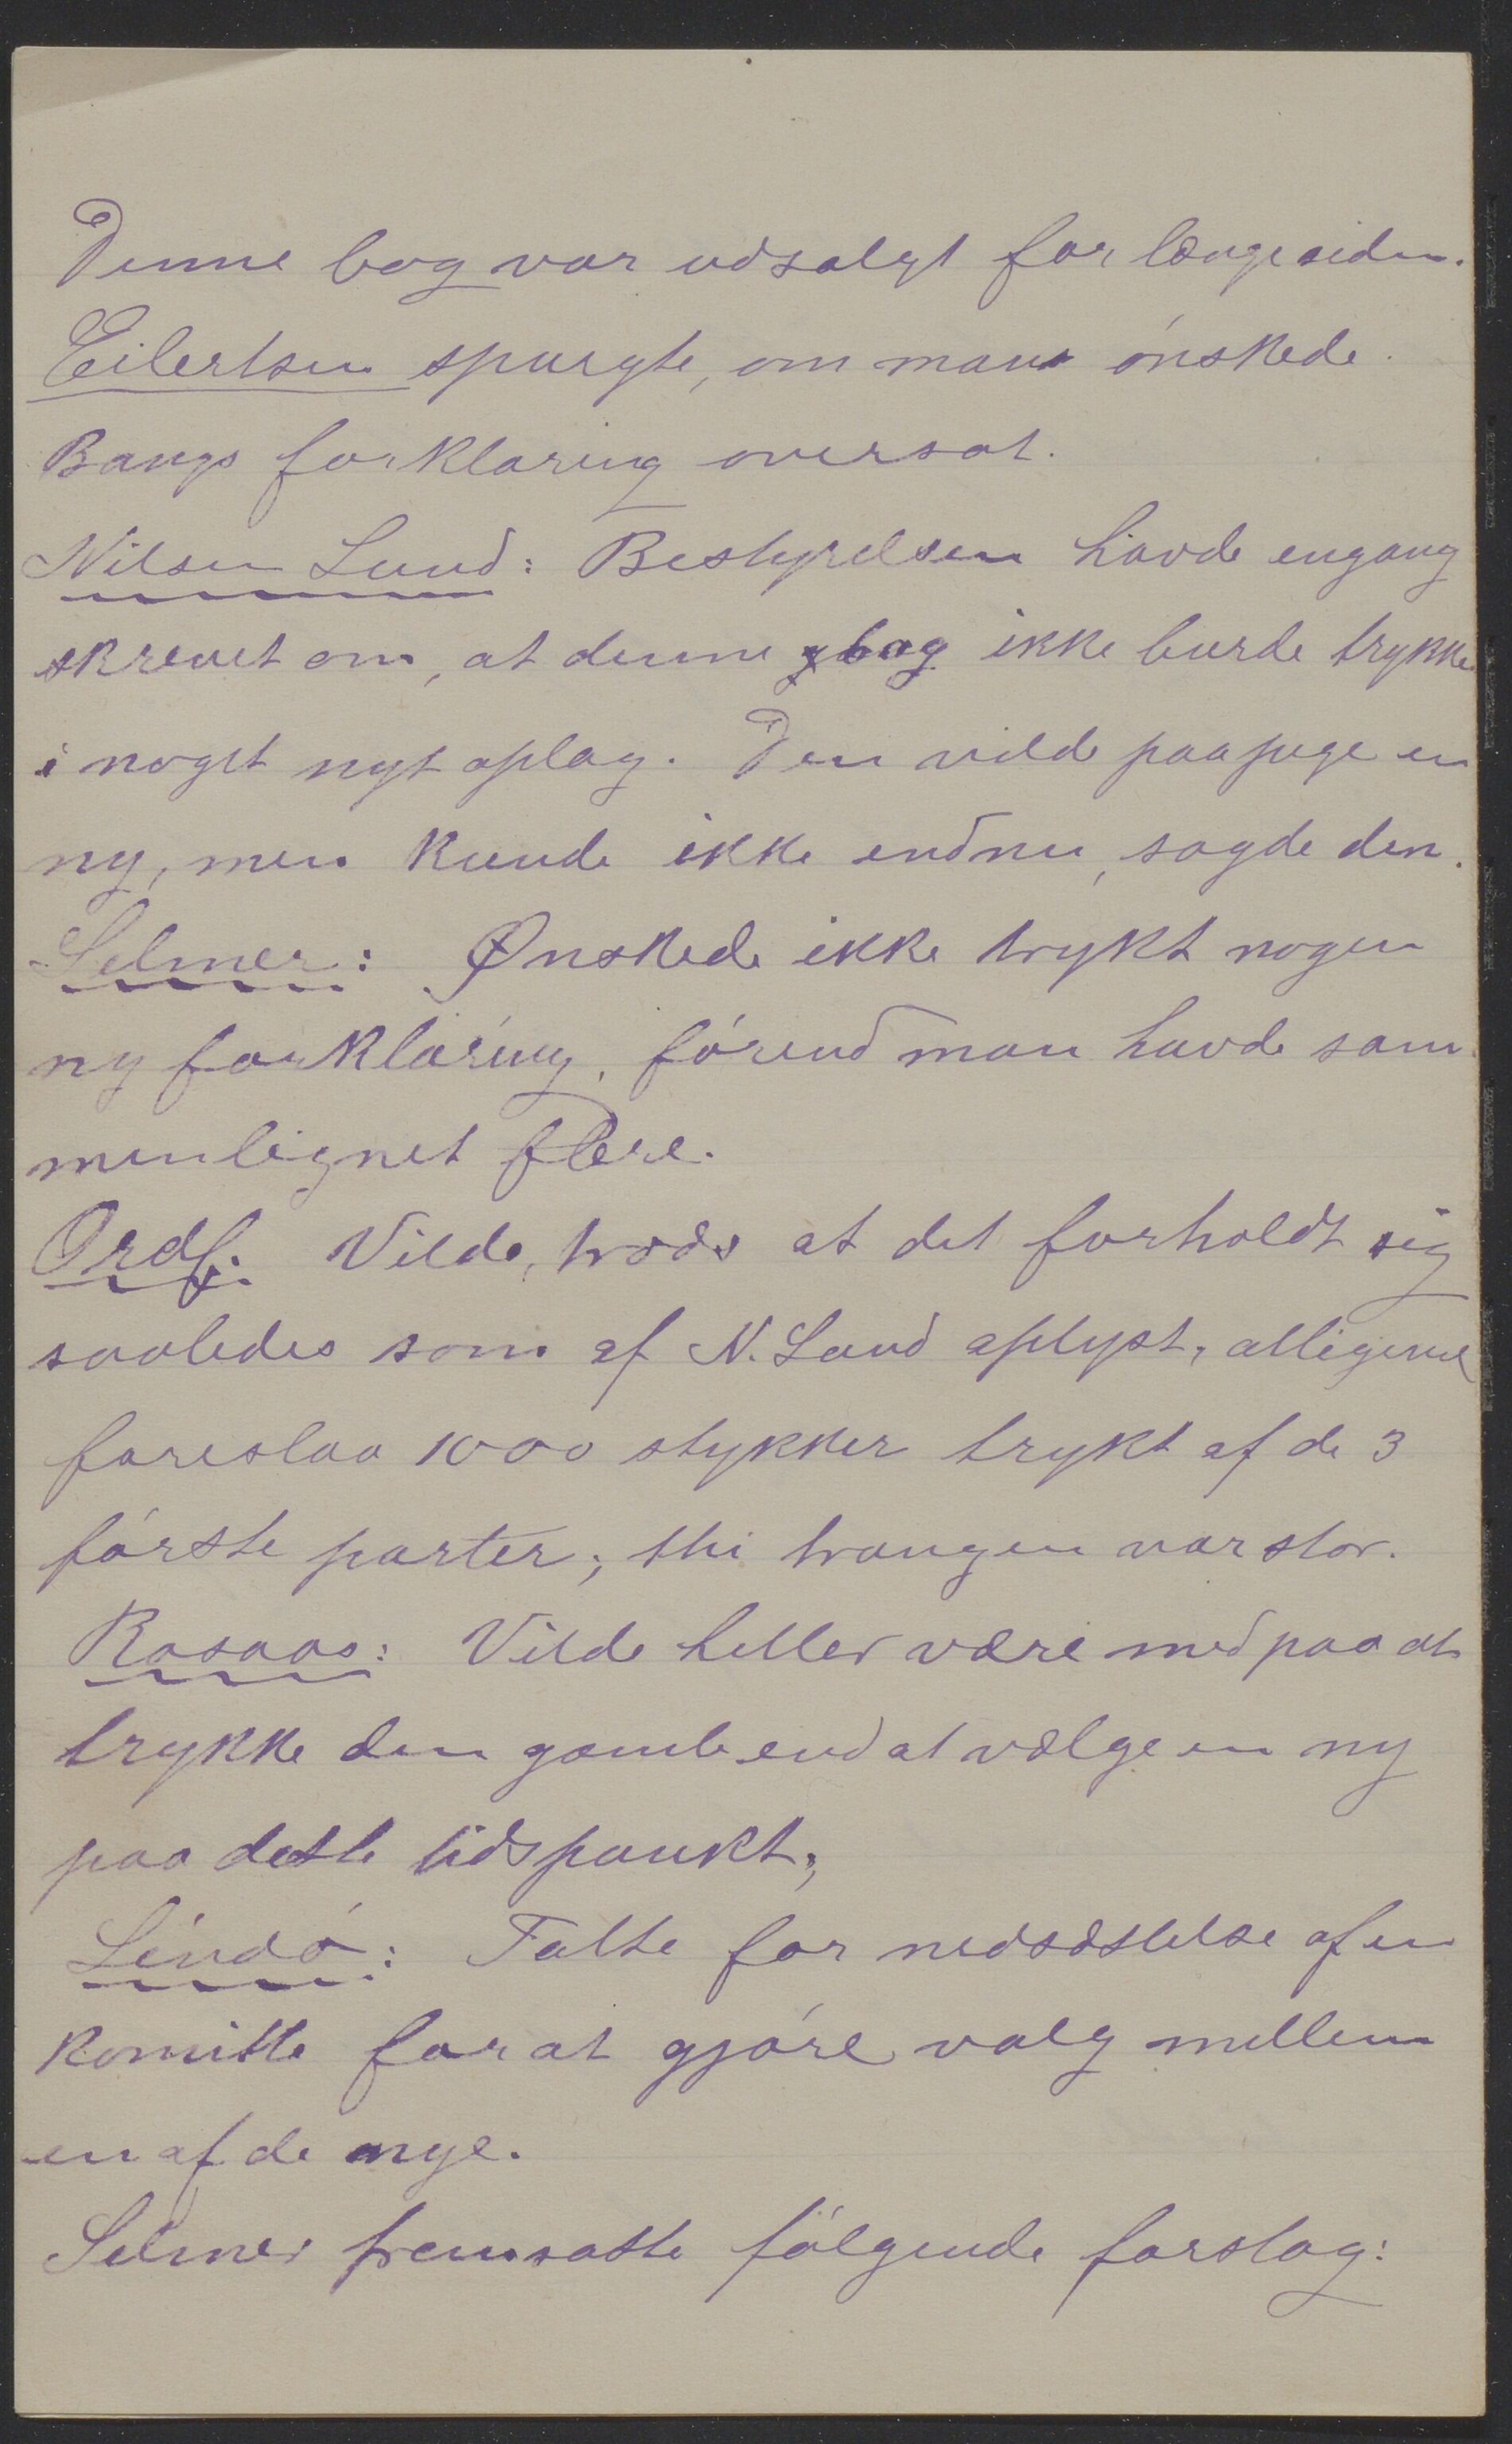 Denne bog var udsolgt for længe siden.
Eilertsen spurgte, om man ónskede
Bangs forklaring oversat.
Nilsen Lund: Bestyrelsen havde engang
skrevet om, at denne bog ikke burde trykkes
i noget nyt oplag. Den vilde paapege en
ny, men kunde ikke endnu, sagde den.
Selmer: Ønskede ikke trykt nogen
ny forklaring, fórend man havde sam
menlignet flere.
Ordf. Vilde, trods at det forholdt sig
saaledes som af N. Lund oplyst, alligevel
foreslaa 1000 stykker trykt af de 3
fórste parter; thi trangen var stor.
Rosaas: Vilde heller være med paa at
trykke den gamle end at vælge en ny
paa dette tidspunkt,
Lindó: Talte for nedsættelse af en
komitte for at gjóre valg mellem
en af de nye.
Selmer fremsatte fólgende forslag: